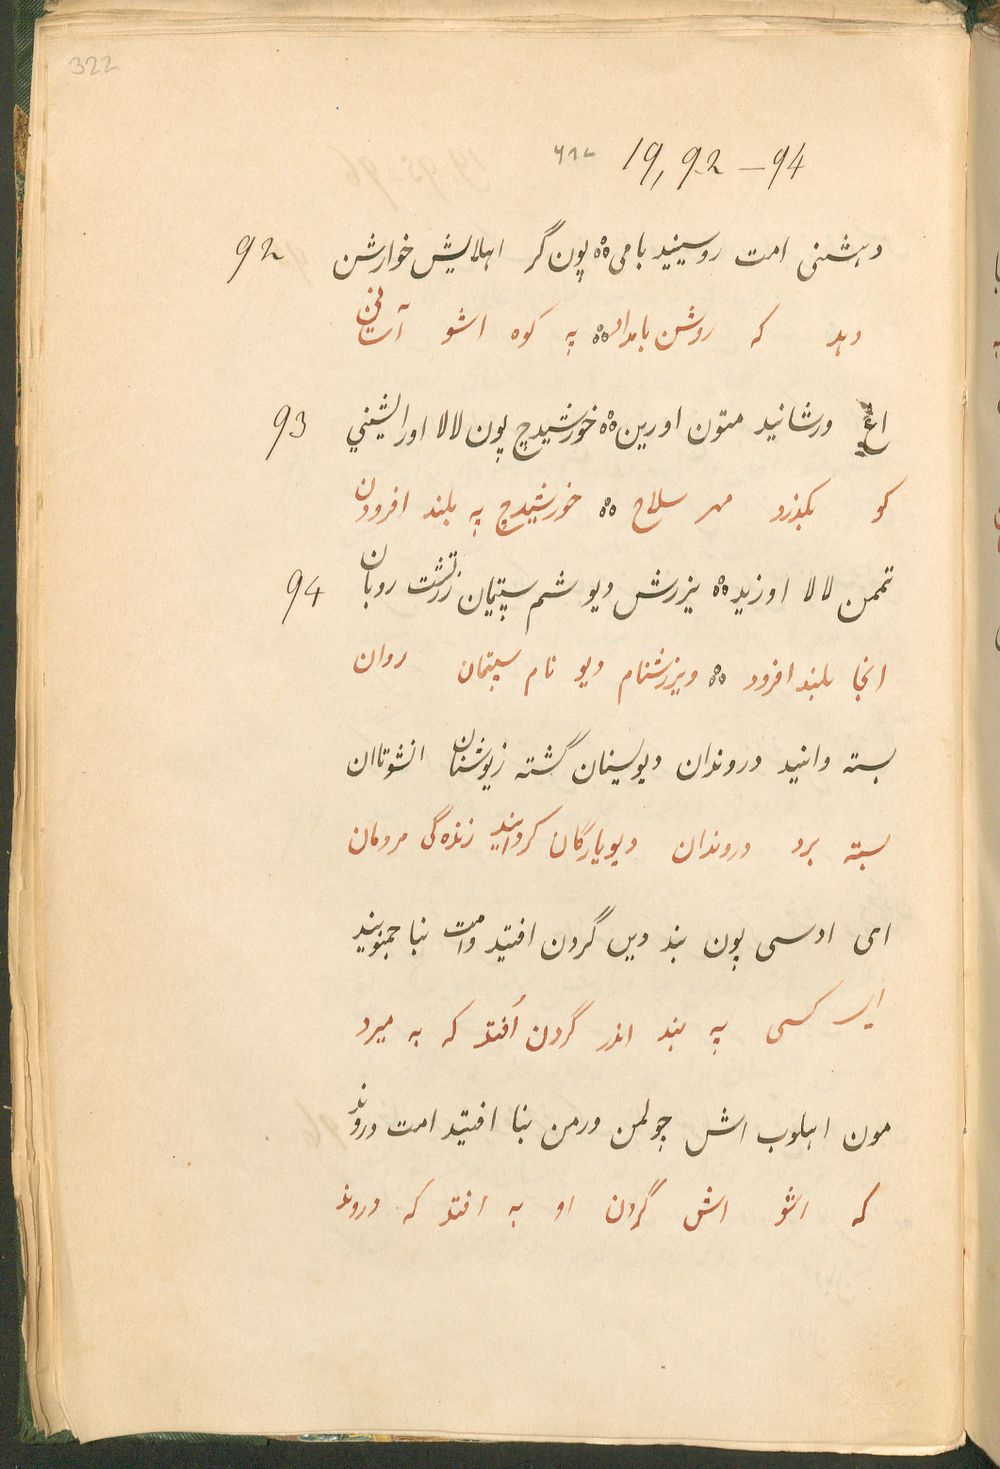 322
19, 92 – 94 ۶۹۲
92 دهشنی امت روسینید بامی ؞ پون گر اهلایش خوارشن
دهد که روشن بامداد ؞ په کوه اشو آسانی
93 ورشانید متون اورین ؞ خورشیدچ پون لالا اورالشینی
کو بگذرد مهر سلاح ؞ خورشیدچ په بلند افرودن
94 تممن لالا اوزید ؞ یزرش دیو شم سپتمان زرتشت روبان
انجا بلند افرود ؞ ویزرشنام دیو نام سپتمان روان
بسته وانید دروندان دیوسینان گشته زیوشنان انشوتاان
بسته برد دروندان دیویارگان کردانید زنده گی مردمان
ای ادسی پون بند دین گردن افتید وامت بنا جمنوینید
ای کسی په بند اندر گردن اُفتد که به میرد
مون اهلوب اش چولمن ورمن بنا افتید امت دروند
که اشو اش گردن او به افتد که دروند